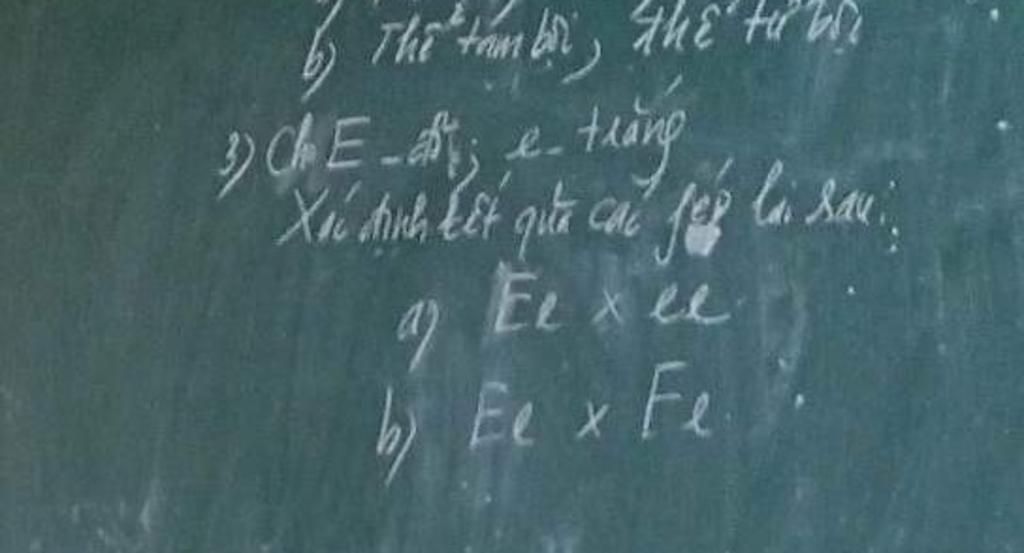 b) Thể tam bội, thể tứ bội
3) Cho E - đỏ; e - trắng
Xác định kết quả các phép lai sau:
a) Ee x ee
b) Ee x Ee